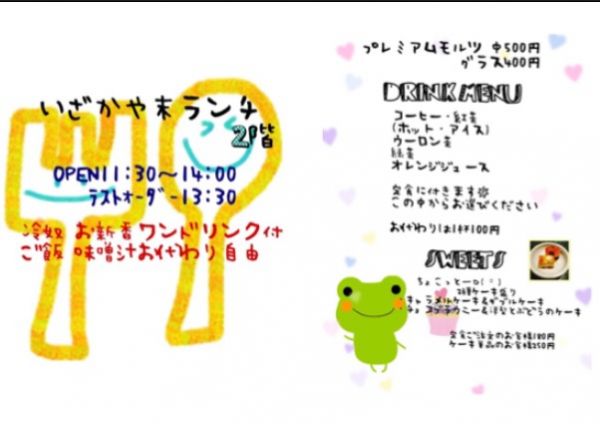 いざかや末ランチ
2階
OPEN11:30〜14:00
ラストオーダー13:30
冷奴 お新香 ワンドリンク付
ご飯 味噌汁お代わり自由
プレミアムモルツ 中500円
グラス400円
DRINK MENU
コーヒー・紅茶
(ホット・アイス)
ウーロン茶
緑茶
オレンジジュース
定食に付きます
この中からお選びください
お代わりは1杯100円
SWEETS
ケーキ盛り
キャラメルケーキ&ダブルケーキ
ブラウニー&洋なとぶどうのケーキ
定食ご注文のお客様180円
ケーキ単品のお客様250円